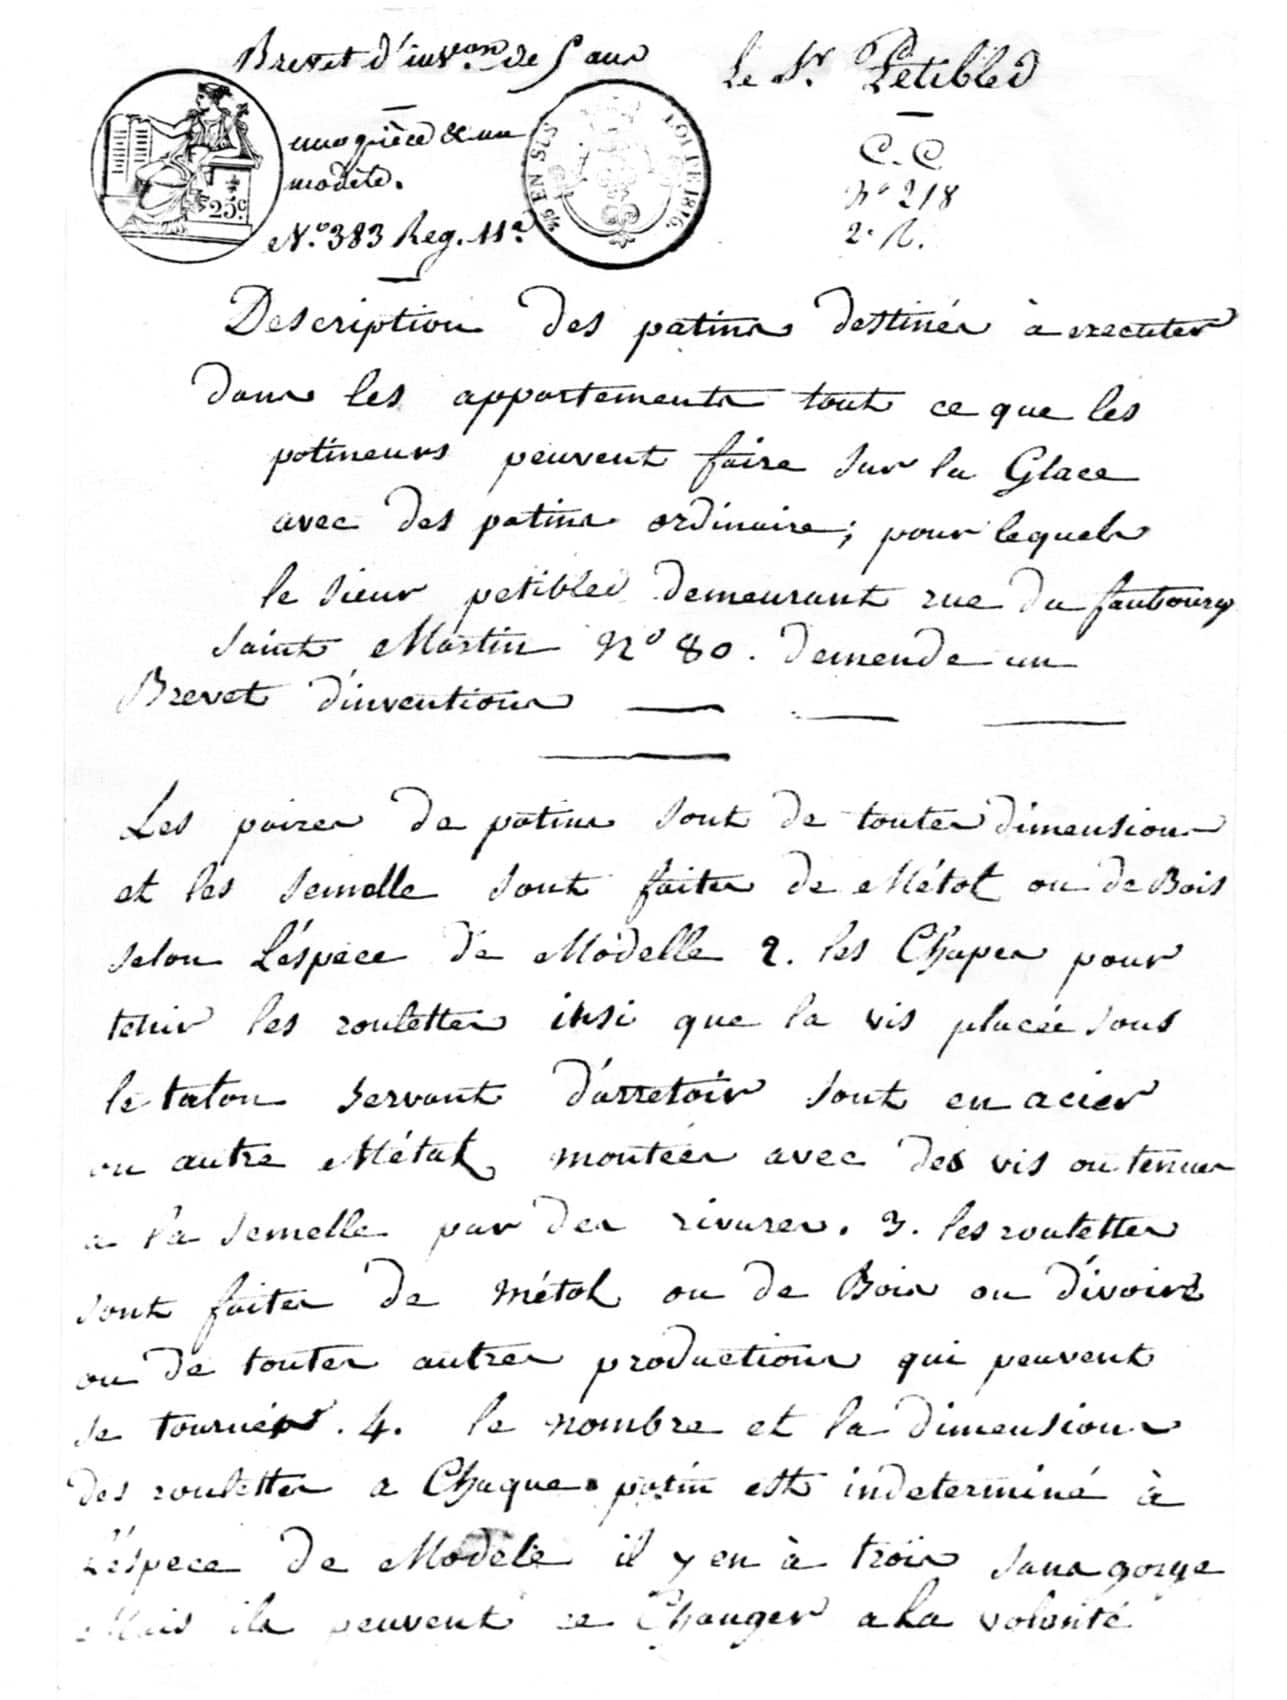 Brevet d'inv.on de 5 ans
Le Sr. Petibled
une pièce & un
modèle.
N.o 383 Reg. 11e
25c
EN SUS
LOI DE 1816.
C. C.
No 218
2. R.
Description des patins destinés à executer
dans les appartements tout ce que les
patineurs peuvent faire sur la Glace
avec des patins ordinaire; pour lequels
le sieur petibled demeurant rue du faubourg
saint Martin No 80. demende un
Brevet d'inventions
Les paires de patins sont de toutes dimensions
et les semelle sont faites de Métal ou de Bois
selon L'éspece de Modelle 2. les Chapes pour
tenir les roulettes insi que la vis placée sous
le talon servant d'arretoir sont en acier
ou autre Métal montées avec des vis ou tenues
a la semelle par des rivures. 3. les roulettes
sont faites de métal ou de Bois ou d'ivoire
ou de toutes autres productions qui peuvent
se tournér. 4. le nombre et la dimensions
des roulettes a Chaque patin est indeterminé à
L'éspece de Modele il y en à trois sans gorge
Mais ils peuvent ce Changer a la volonté